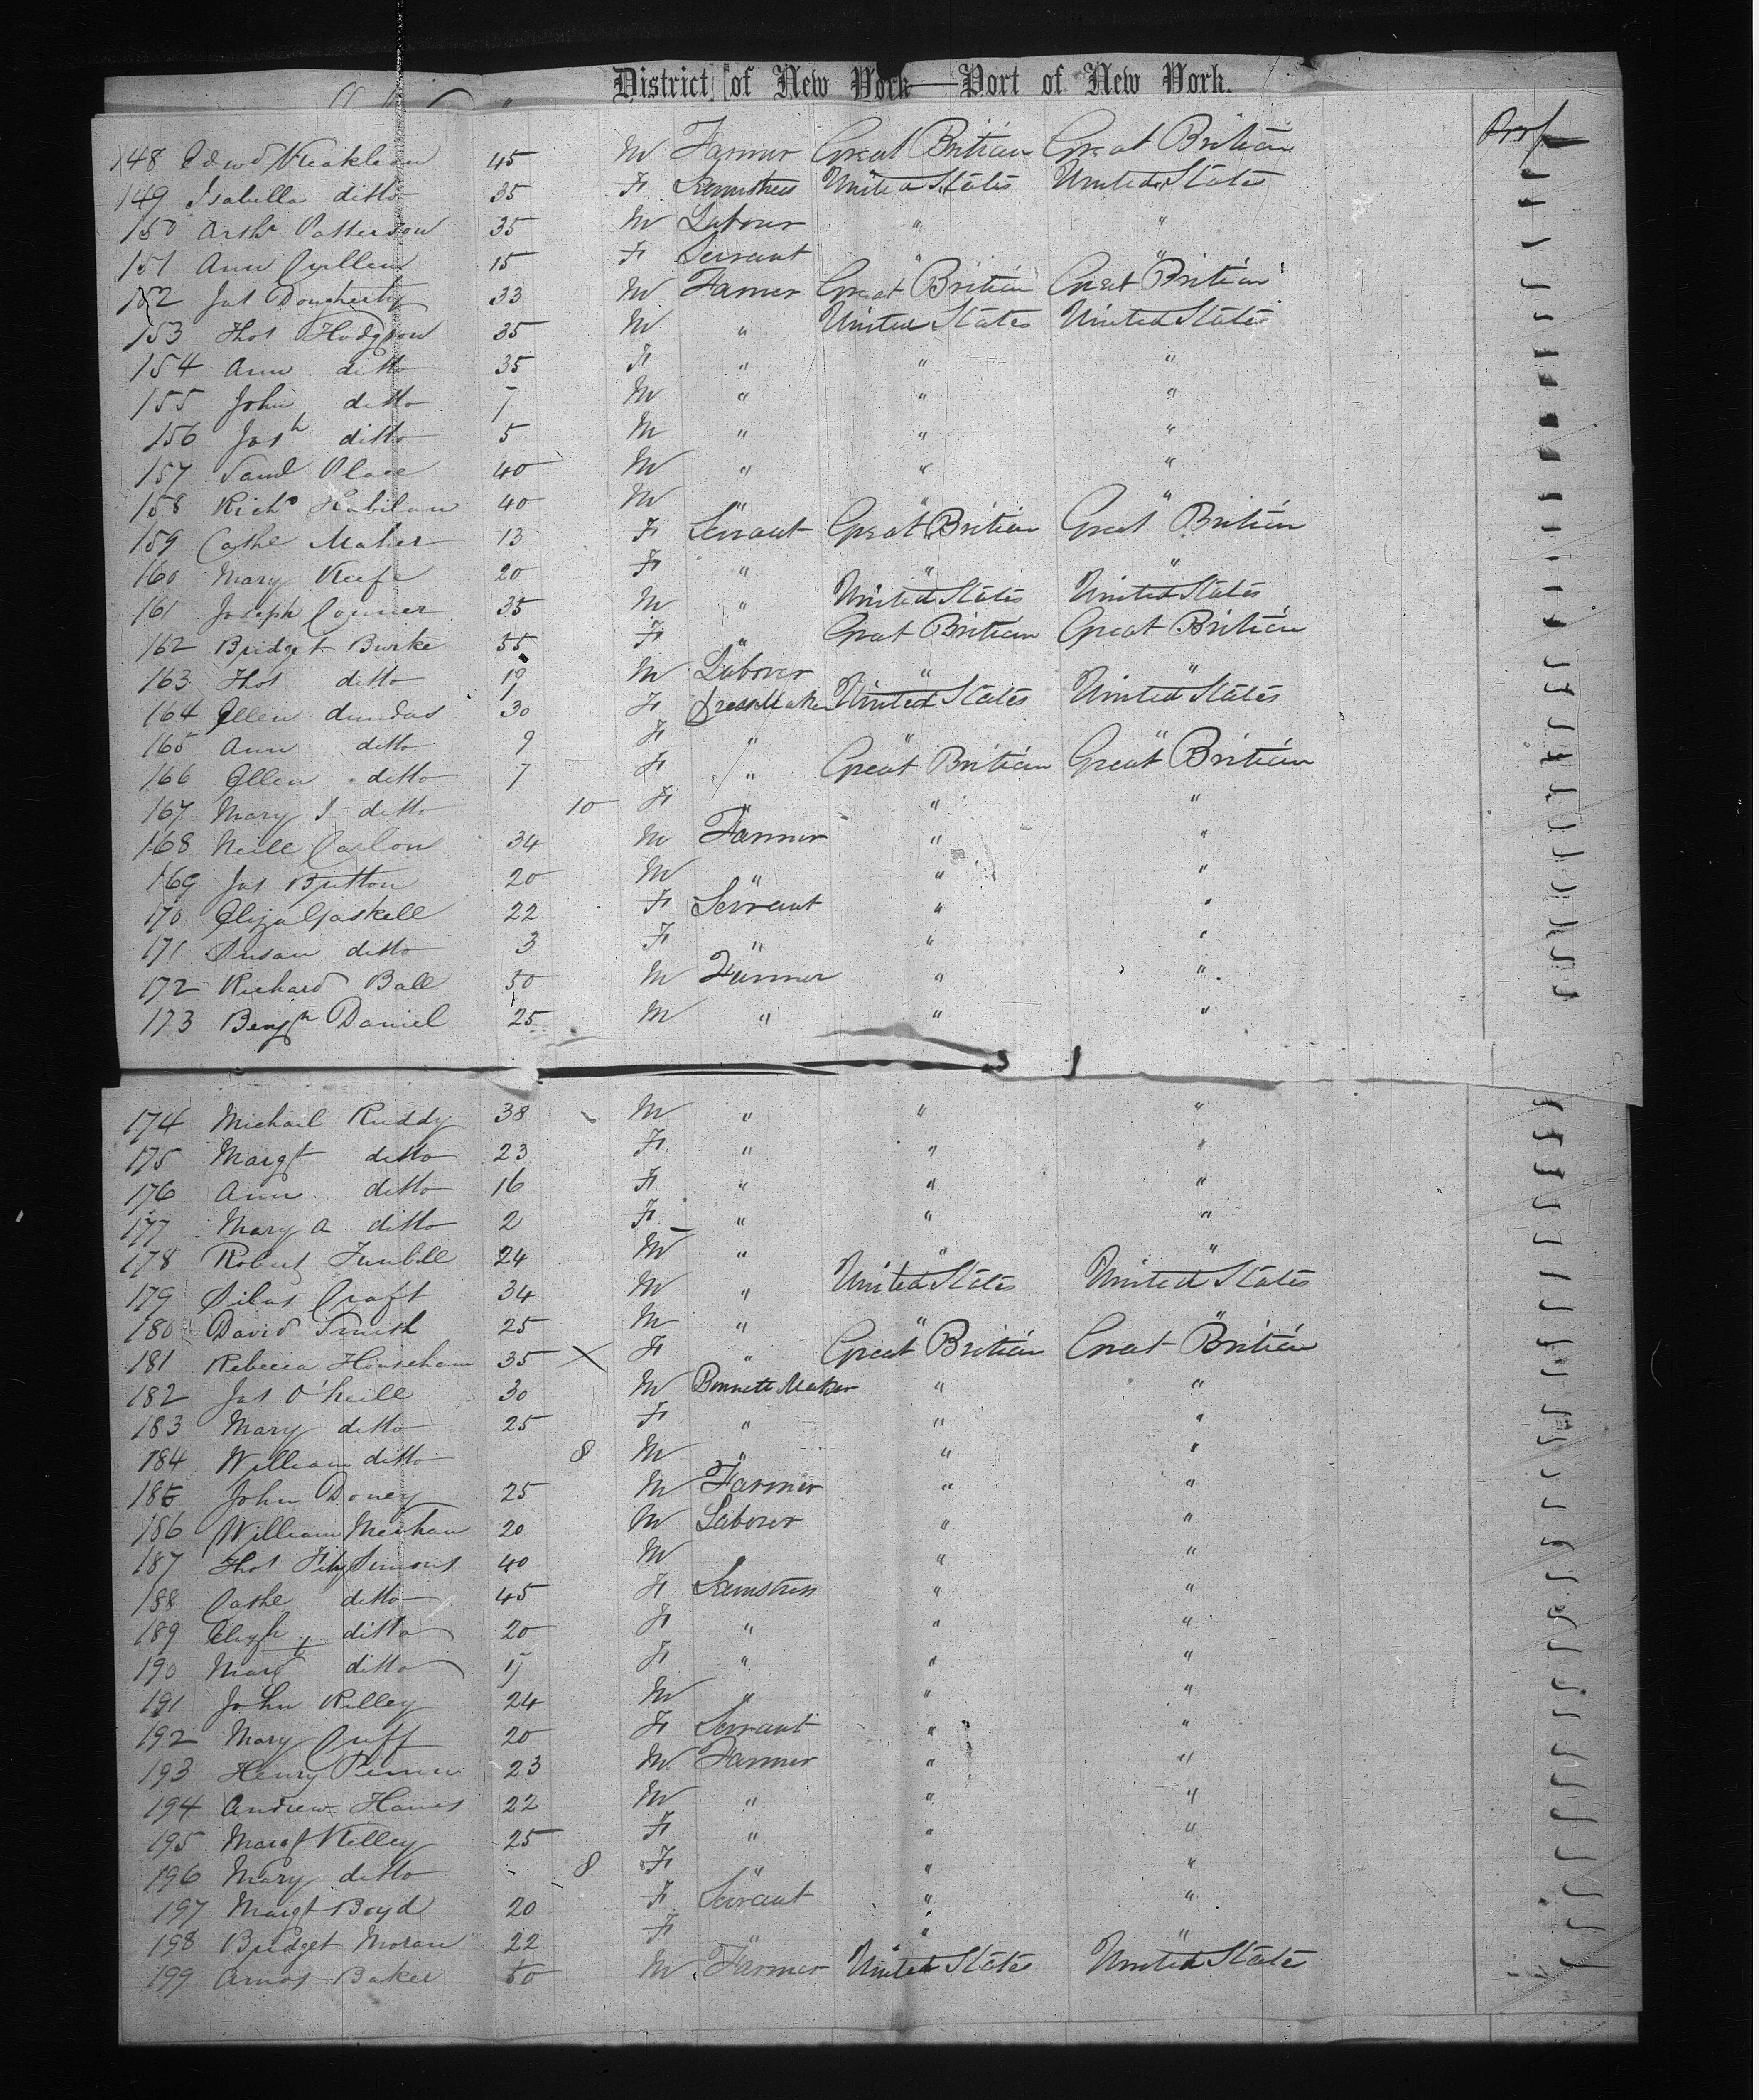 District of New York — Port of New York.
148 Edwd 45 M Farmer Great Britian Great Britian
149 Isabella ditto 35 F United States United States
150 Arthr Patterson 35 M Labour " "
151 Ann Cullen 15 F Servant " "
152 Jas Dougherty 33 M Farmer Great Britian Great Britian
153 Thos Hodgson 35 M " United States United States
154 Ann ditto 35 F " " "
155 John ditto 7 M " " "
156 Josh ditto 5 M " " "
157 Saml Place 40 M " " "
158 Richd 40 M " " "
159 Cathe Maher 13 F Servant Great Britian Great Britian
160 Mary Keefe 20 F " " "
161 Joseph Conner 35 M " United States United States
162 Bridget Burke 55 F " Great Britian Great Britian
163 Thos ditto 19 M Laborer " "
164 Ellen dundas 30 F DressMaker United States United States
165 Ann ditto 9 F " " "
166 Ellen ditto 7 F " Great Britian Great Britian
167 Mary J ditto 10 F " "
168 Neill Carlon 34 M Farmer " "
169 Jas Button 20 M " " "
170 Eliza Gaskell 22 F Servant " "
171 Susan ditto 3 F " " "
172 Richard Ball 50 M Farmer " "
173 Benjn Daniel 25 M " " "
174 Michail Ruddy 38 M " " "
175 Margt ditto 23 F " " "
176 Ann ditto 16 F " " "
177 Mary A ditto 2 F " " "
178 Robert Turnbll 24 M " " "
179 Silas Craft 34 M " United States United States
180 David Smith 25 M " " "
181 Rebecca 35 X F " Great Britian Great Britian
182 Jas O'Neill 30 M Bonnett Maker " "
183 Mary ditto 25 F " " "
184 William ditto 8 M " " "
185 John Doney 25 M Farmer " "
186 William Meehan 20 M Laborer " "
187 Thos FitzSimons 40 M " " "
188 Cathe ditto 45 F Seamstress " "
189 Elizh ditto 20 F " " "
190 Margt ditto 17 F " " "
191 John Rilley 24 M " " "
192 Mary Cuff 20 F Servant " "
193 Henry 23 M Farmer " "
194 Andrew Hames 22 M " " "
195 Margt Kelley 25 F " " "
196 Mary ditto - 8 F " " "
197 Margt Boyd 20 F Servant " "
198 Bridget Moran 22 F " " "
199 Amos Baker 50 M Farmer United States United States